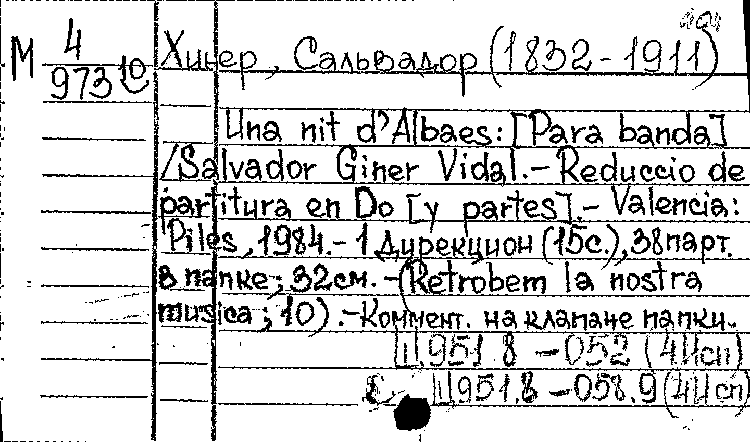 М 4
973 10
Хинер, Сальвадор (1832-1911)
Una nit d'Albaes: [Para banda]
/Salvador Giner Vidal.- Reduccio de
partitura en Do [y partes].- Valencia:
Piles, 1984.- 1 дирекцион (15с.), 38 парт.
в папке; 32см. -(Retrobem la nostra
musica; 10).-Коммент. на клапане папки.
Щ951.8 -052 (4Исп)
Щ951.8-058.9(4Исп)